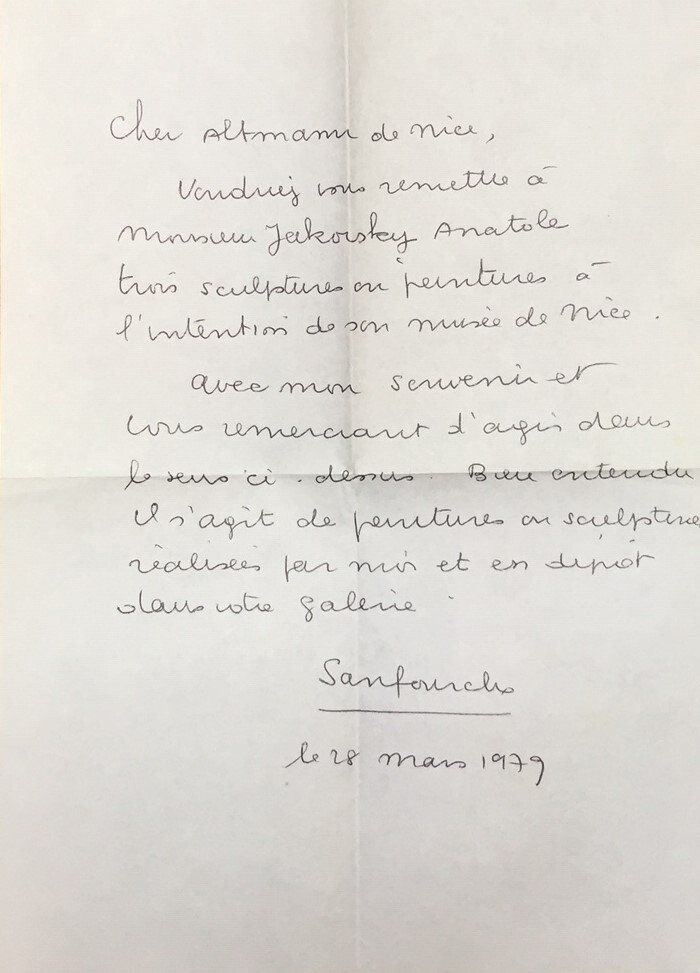 Cher Altmann de Nice,
Voudriez vous remettre à
Monsieur Jakovsky Anatole
trois sculptures ou peintures à
l'intention de son musée de Nice.
avec mon souvenir et
vous remerciant d'agir dans
le sens ci-dessus. Bien entendu
il s'agit de peintures ou sculptures
réalisées par moi et en dépôt
dans votre galerie.
Sanfourche
le 28 mars 1979